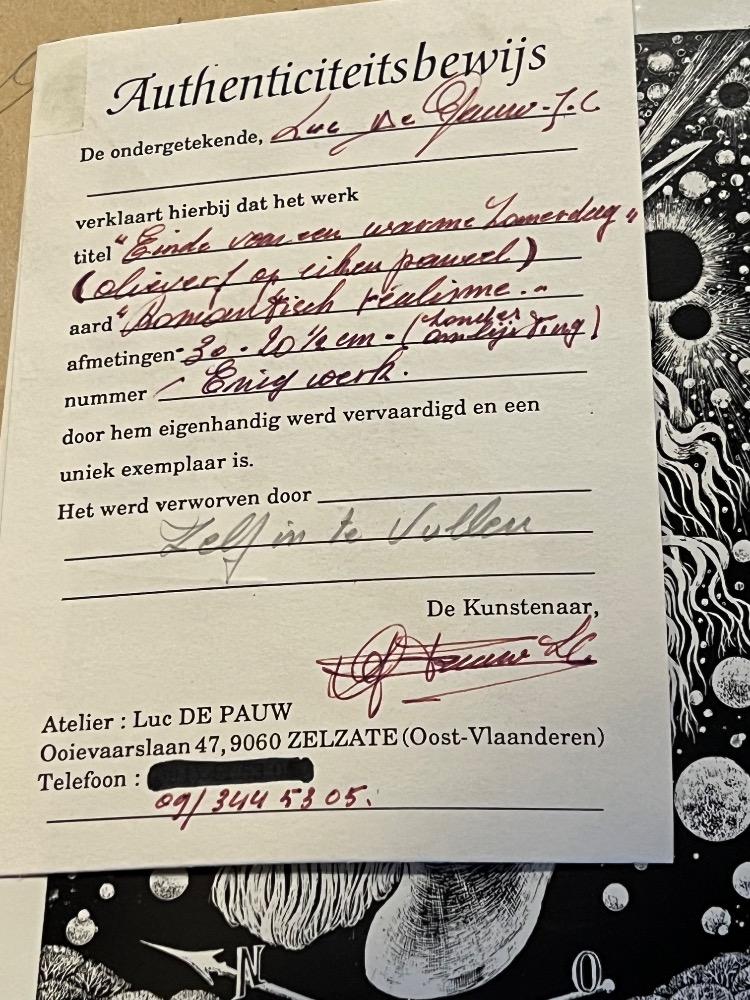 Authenticiteitsbewijs
De ondergetekende, Luc De Pauw-J.C
verklaart hierbij dat het werk
titel "Einde van een warme Zomerdag"
(olieverf op eiken paneel)
aard "Romantisch réalisme."
afmetingen - 30 - 20 ½ cm - (zonder omlijsting)
nummer Enig werk.
door hem eigenhandig werd vervaardigd en een
uniek exemplaar is.
Het werd verworven door
Zelf in te Vullen
De Kunstenaar,
Atelier : Luc DE PAUW
Ooievaarslaan 47, 9060 ZELZATE (Oost-Vlaanderen)
Telefoon :
09/344 53 05.
N O.